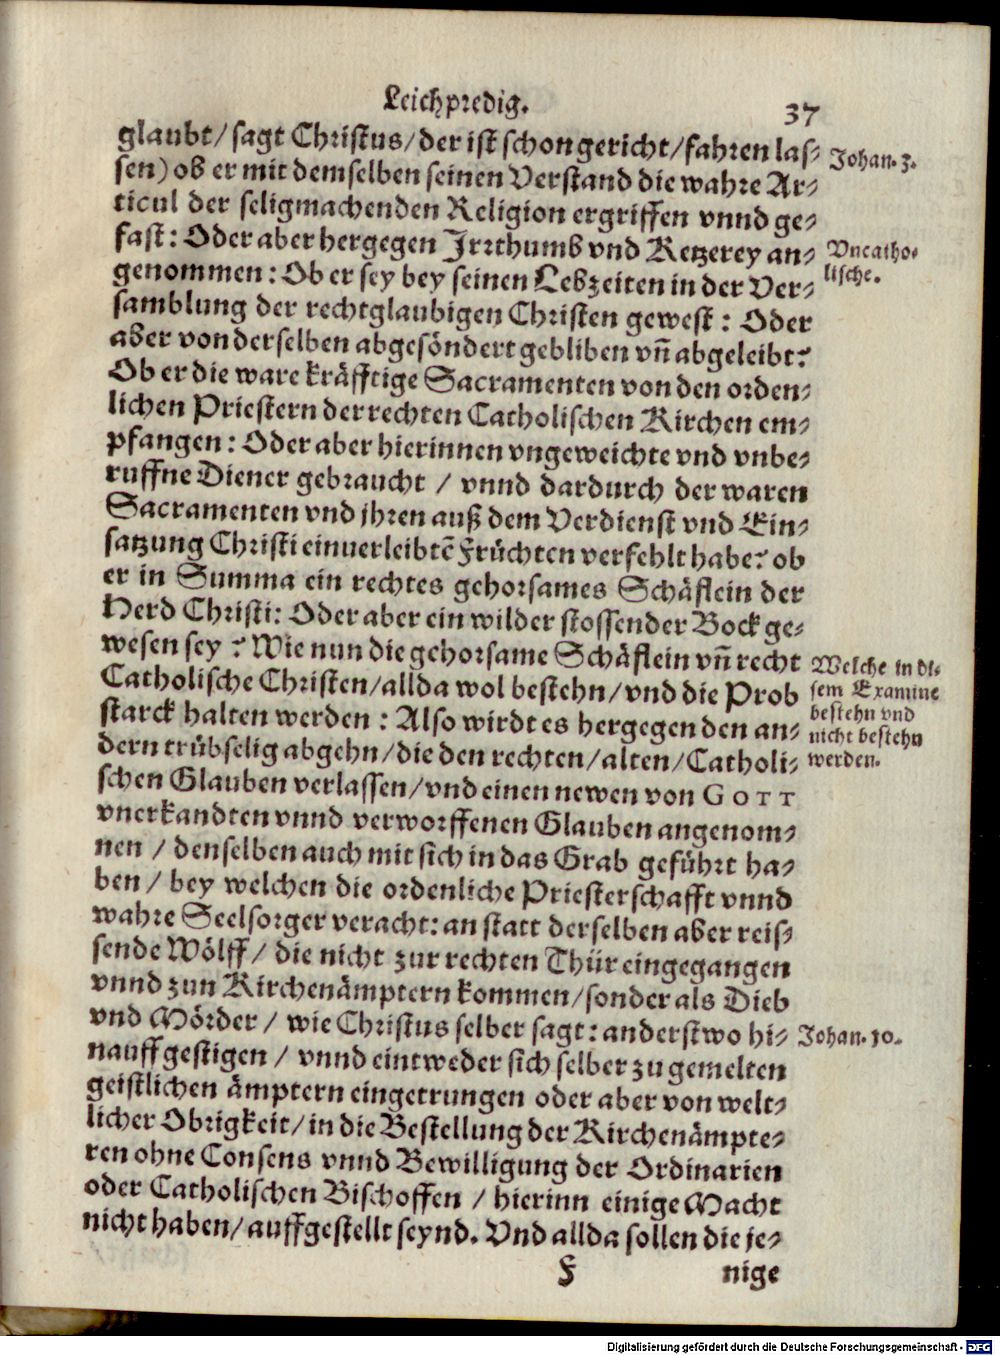 Leichpredig. 37
glaubt/ sagt Christus/ der ist schon gericht/ fahren las-
sen) ob er mit demselben seinen Verstand die wahre Ar-
ticul der seligmachenden Religion ergriffen vnnd ge-
fast: Oder aber hergegen Jrrthumb vnd Ketzerey an-
genommen: Ob er sey bey seinen Lebzeiten in der Ver-
samblung der rechtglaubigen Christen gewest: Oder
aber von derselben abgesöndert gebliben vn̄ abgeleibt?
Ob er die ware kräfftige Sacramenten von den orden-
lichen Priestern der rechten Catholischen Kirchen em-
pfangen: Oder aber hierinnen vngeweichte vnd vnbe-
ruffne Diener gebraucht / vnnd dardurch der waren
Sacramenten vnd jhren auß dem Verdienst vnd Ein-
satzung Christi einuerleibtē Früchten verfehlt habe? ob
er in Summa ein rechtes gehorsames Schäflein der
Herd Christi: Oder aber ein wilder stossender Bock ge-
wesen sey? Wie nun die gehorsame Schäflein vn̄ recht
Catholische Christen/ allda wol bestehn/ vnd die Prob
starck halten werden: Also wirdt es hergegen den an-
dern trübselig abgehn/ die den rechten/ alten/ Catholi-
schen Glauben verlassen/ vnd einen newen von GOTT
vnerkandten vnnd verworffenen Glauben angenom-
nen / denselben auch mit sich in das Grab geführt ha-
ben / bey welchen die ordenliche Priesterschafft vnnd
wahre Seelsorger veracht: an statt derselben aber reis-
sende Wölff/ die nicht zur rechten Thür eingegangen
vnnd zun Kirchenämptern kommen/ sonder als Dieb
vnd Mörder / wie Christus selber sagt: anderstwo hi-
nauff gestigen / vnnd eintweder sich selber zu gemelten
geistlichen ämptern eingetrungen oder aber von welt-
licher Obrigkeit/ in die Bestellung der Kirchenämpte-
ren ohne Consens vnnd Bewilligung der Ordinarien
oder Catholischen Bischoffen / hierinn einige Macht
nicht haben/ auffgestellt seynd. Vnd allda sollen die je-
F nige
Johan. 3.
Vncatho-
lische.
Welche in di-
sem Examine
bestehn vnd
nicht bestehn
werden.
Johan. 10.
Digitalisierung gefördert durch die Deutsche Forschungsgemeinschaft - DFG